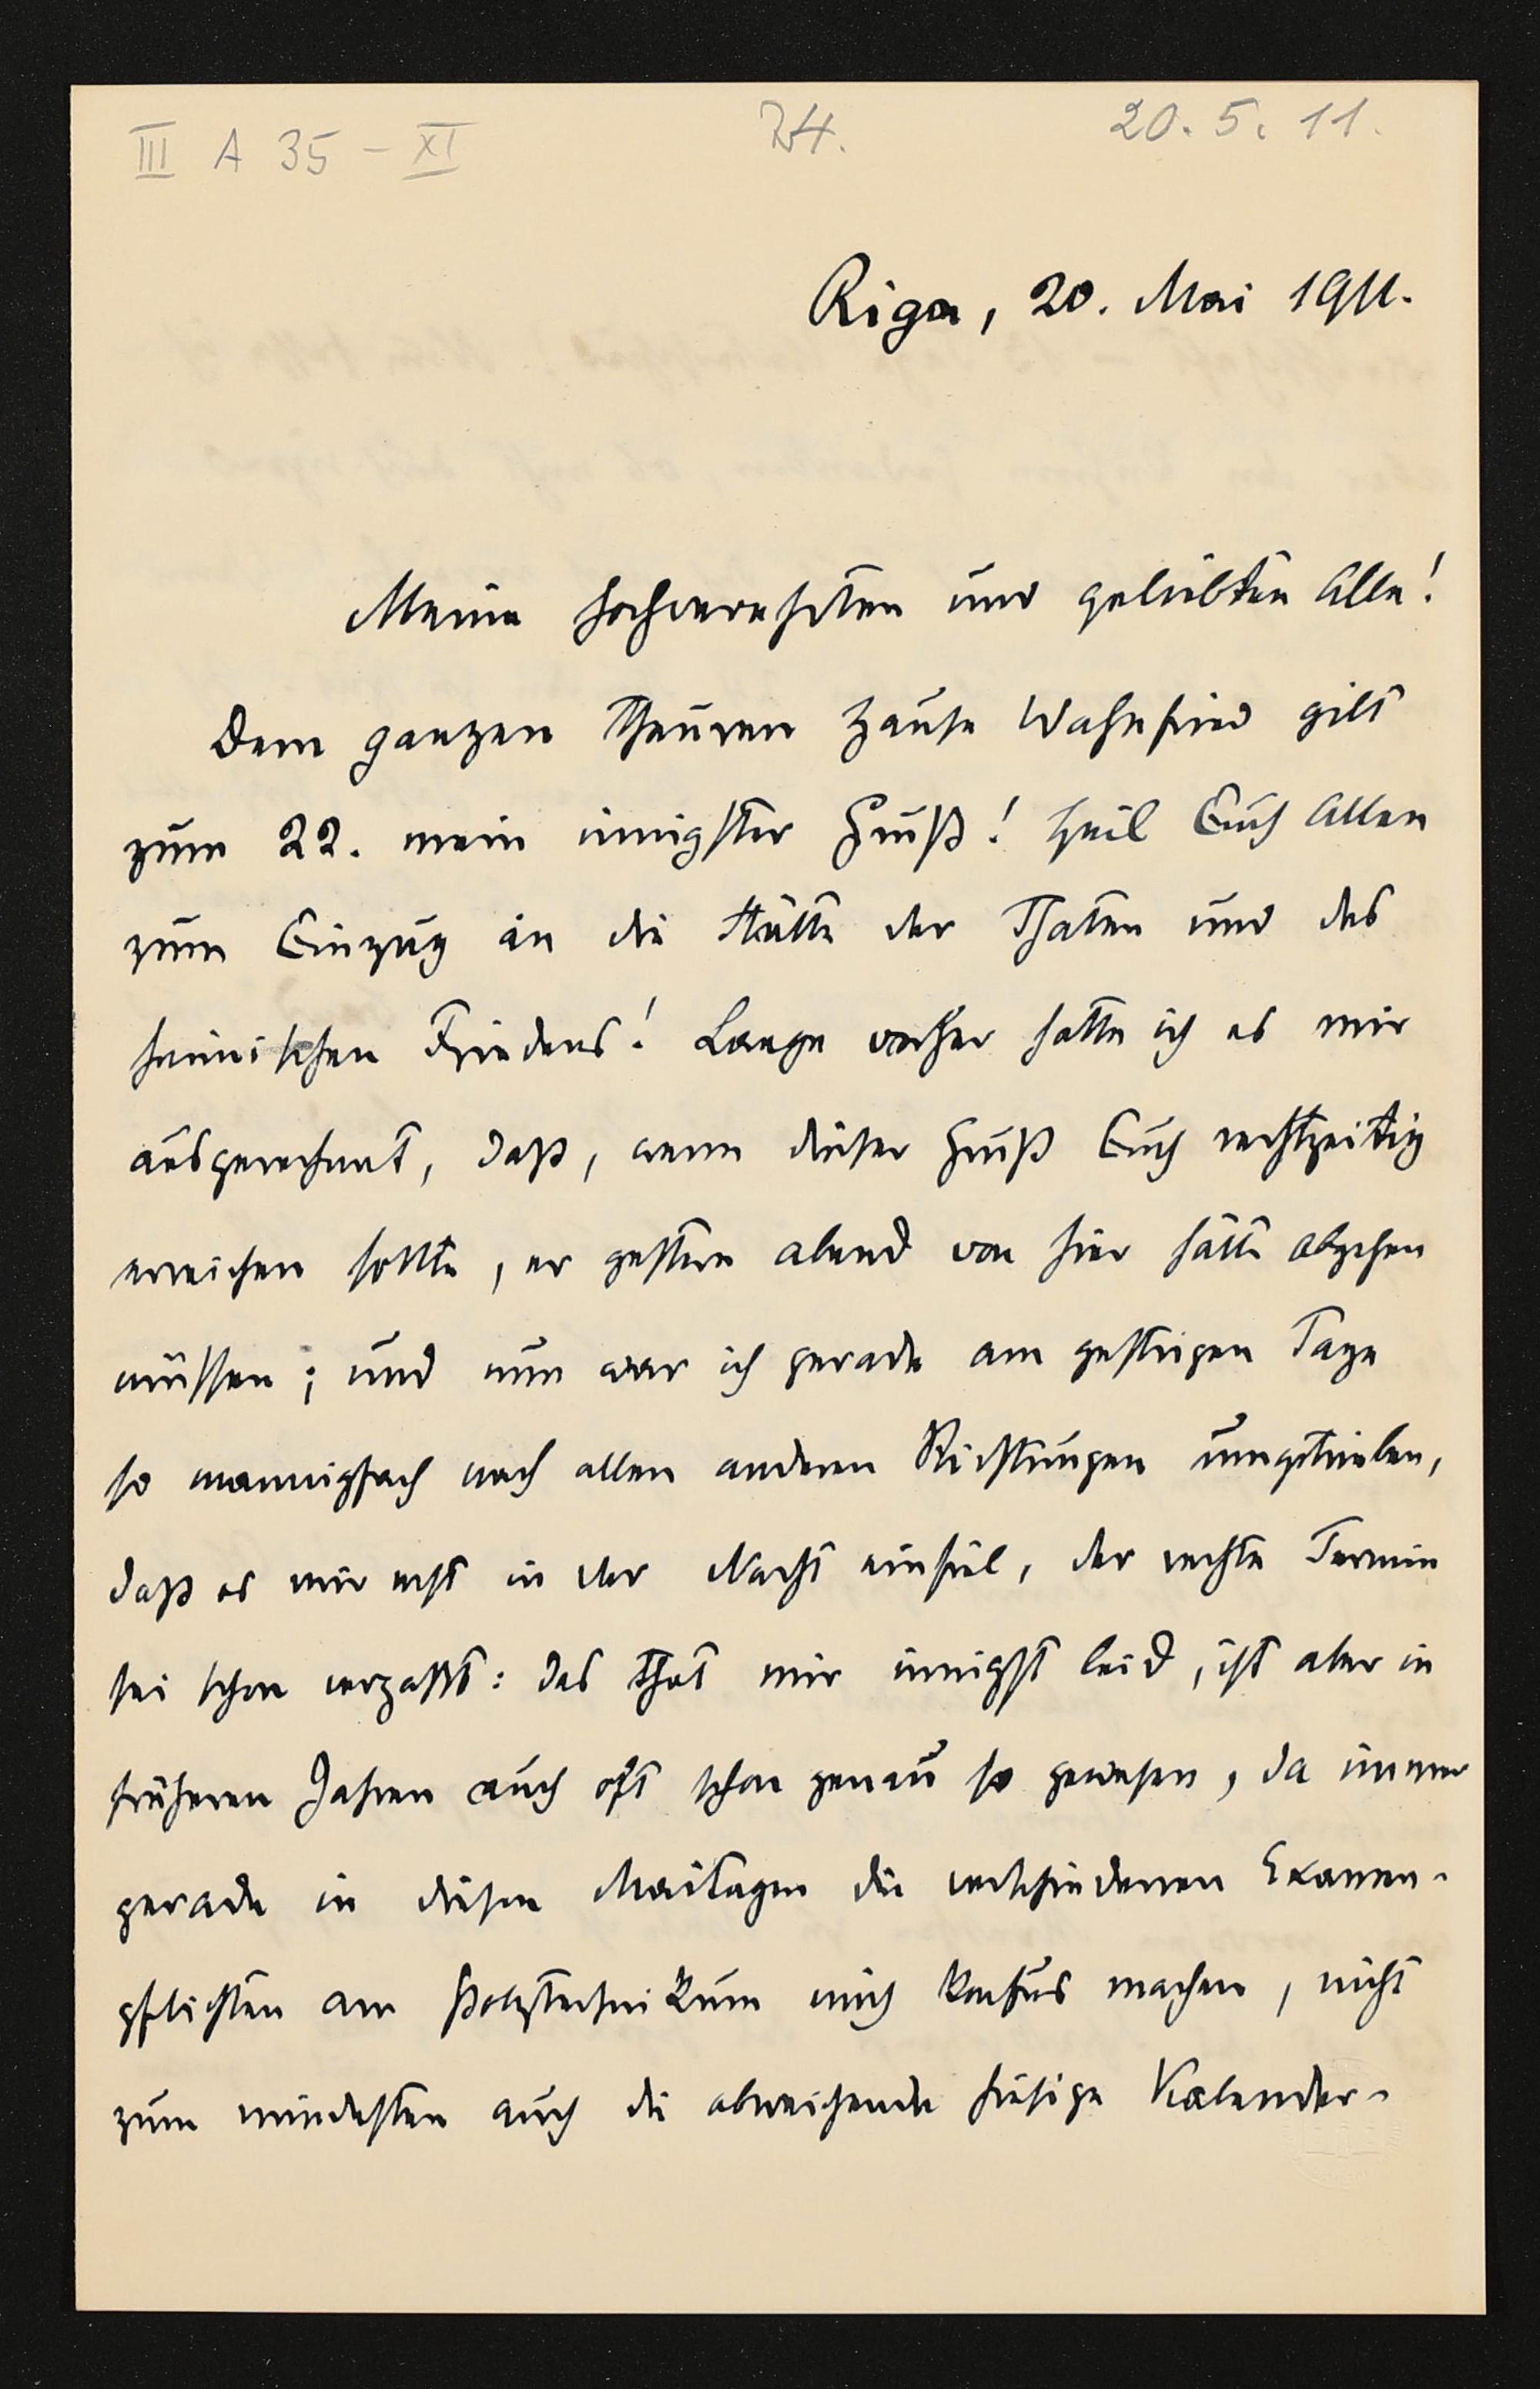 III A 35 – XI
24.
20. 5. 11.
Riga, 20. Mai 1911.
Meine hochverehrten und geliebten Alle!
Dem ganzen theuren Hause Wahnfried gilt
zum 22. mein innigster Gruß! Heil Euch Allen
zum Einzug in die Stätte der Thaten und des
heimischen Friedens! Lange vorher hatte ich es mir
ausgerechnet, daß, wenn dieser Gruß Euch rechtzeitig
erreichen sollte, er gestern abend von hier hätte abgehen
müssen; und nun war ich gerade am gestrigen Tage
so mannigfach nach allen anderen Richtungen umgetrieben,
daß es mir erst in der Nacht einfiel, der rechte Termin
sei schon verpaßt: das that mir innigst leid, ist aber in
früheren Jahren auch oft schon genau so gewesen, da immer
gerade in diesen Maitagen die verschiedenen Examen-
pflichten am Polytechnikum mich konfus machen, nicht
zum mindesten auch die abweichende hiesige Kalender-